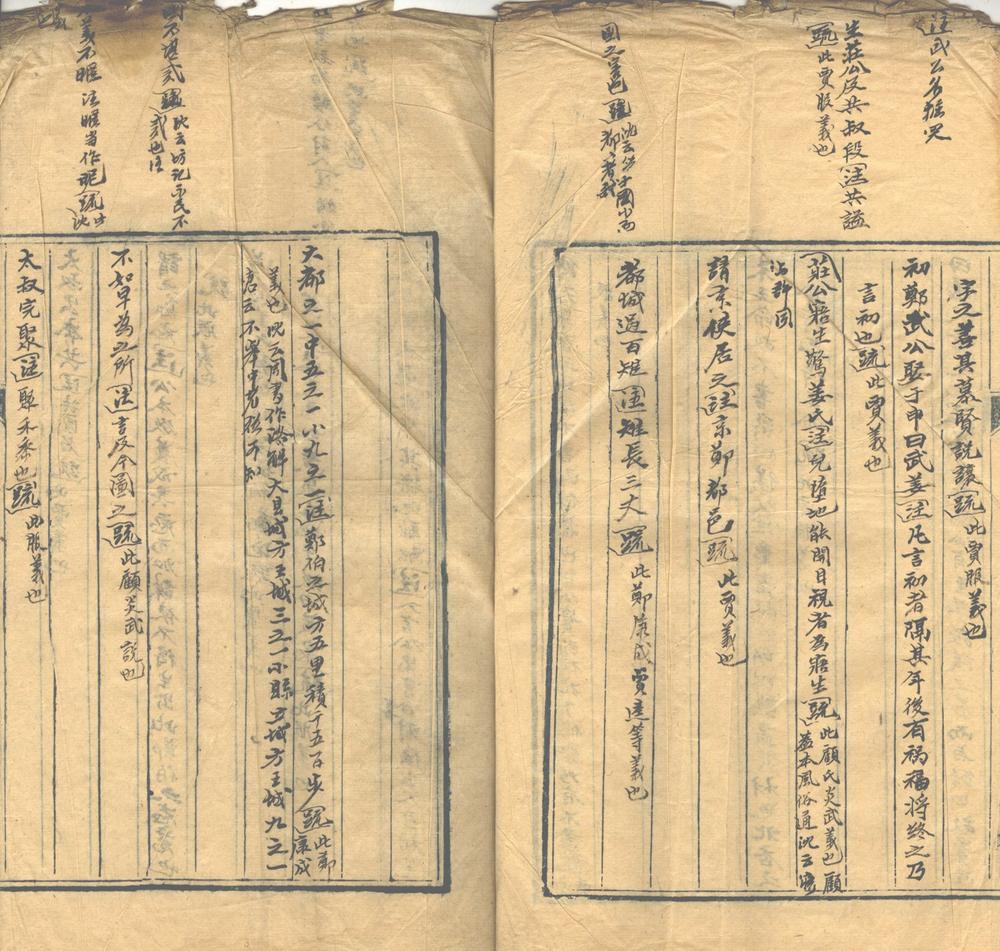 注武公名掘突
生莊公及共叔段注共諡
疏此賈服義也
國之害也疏沈云
字之善其慕賢說讓疏此賈服義也
初鄭武公娶于申曰武姜注凡言初者隔其年後有禍福將終之乃
言初也疏此賈義也
莊公寤生驚姜氏注兒墮地能開目視者為寤生疏此顧氏炎武義也顧
蓋本風俗通沈云
請京使居之注京鄭都邑疏此賈義也
都城過百雉注雉長三丈疏此鄭康成賈逵等義也
國不堪貳疏沈云坊記示民不
貳也注
義不暱注暱當作昵疏
大都之一中五之一小九之一注鄭伯之城方五里積千五百步疏此鄭
康成
義也沈云周書作洛解大縣城方王城三之一小縣立城方王城九之一
唐云不舉中者從可知
不如早為之所注言及今圖之疏此顧炎武說也
太叔完聚注聚禾黍也疏此服義也